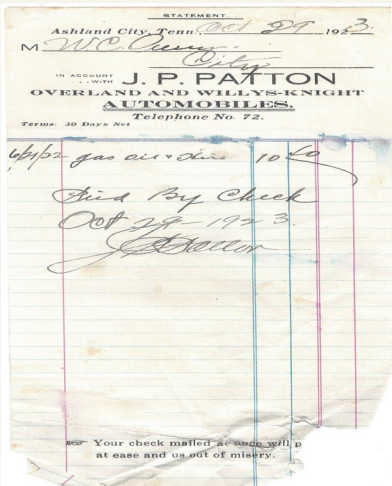 STATEMENT
Ashland City, Tenn. Oct 29 1923.
M W.C.
City
IN ACCOUNT
...WITH J. P. PATTON
OVERLAND AND WILLYS-KNIGHT
AUTOMOBILES.
Telephone No. 72.
Terms: 30 Days Net
gas oil & 10 40
Paid By Check
Oct 29 1923.
J P Patton
Your check mailed at once will p
at ease and us out of misery.